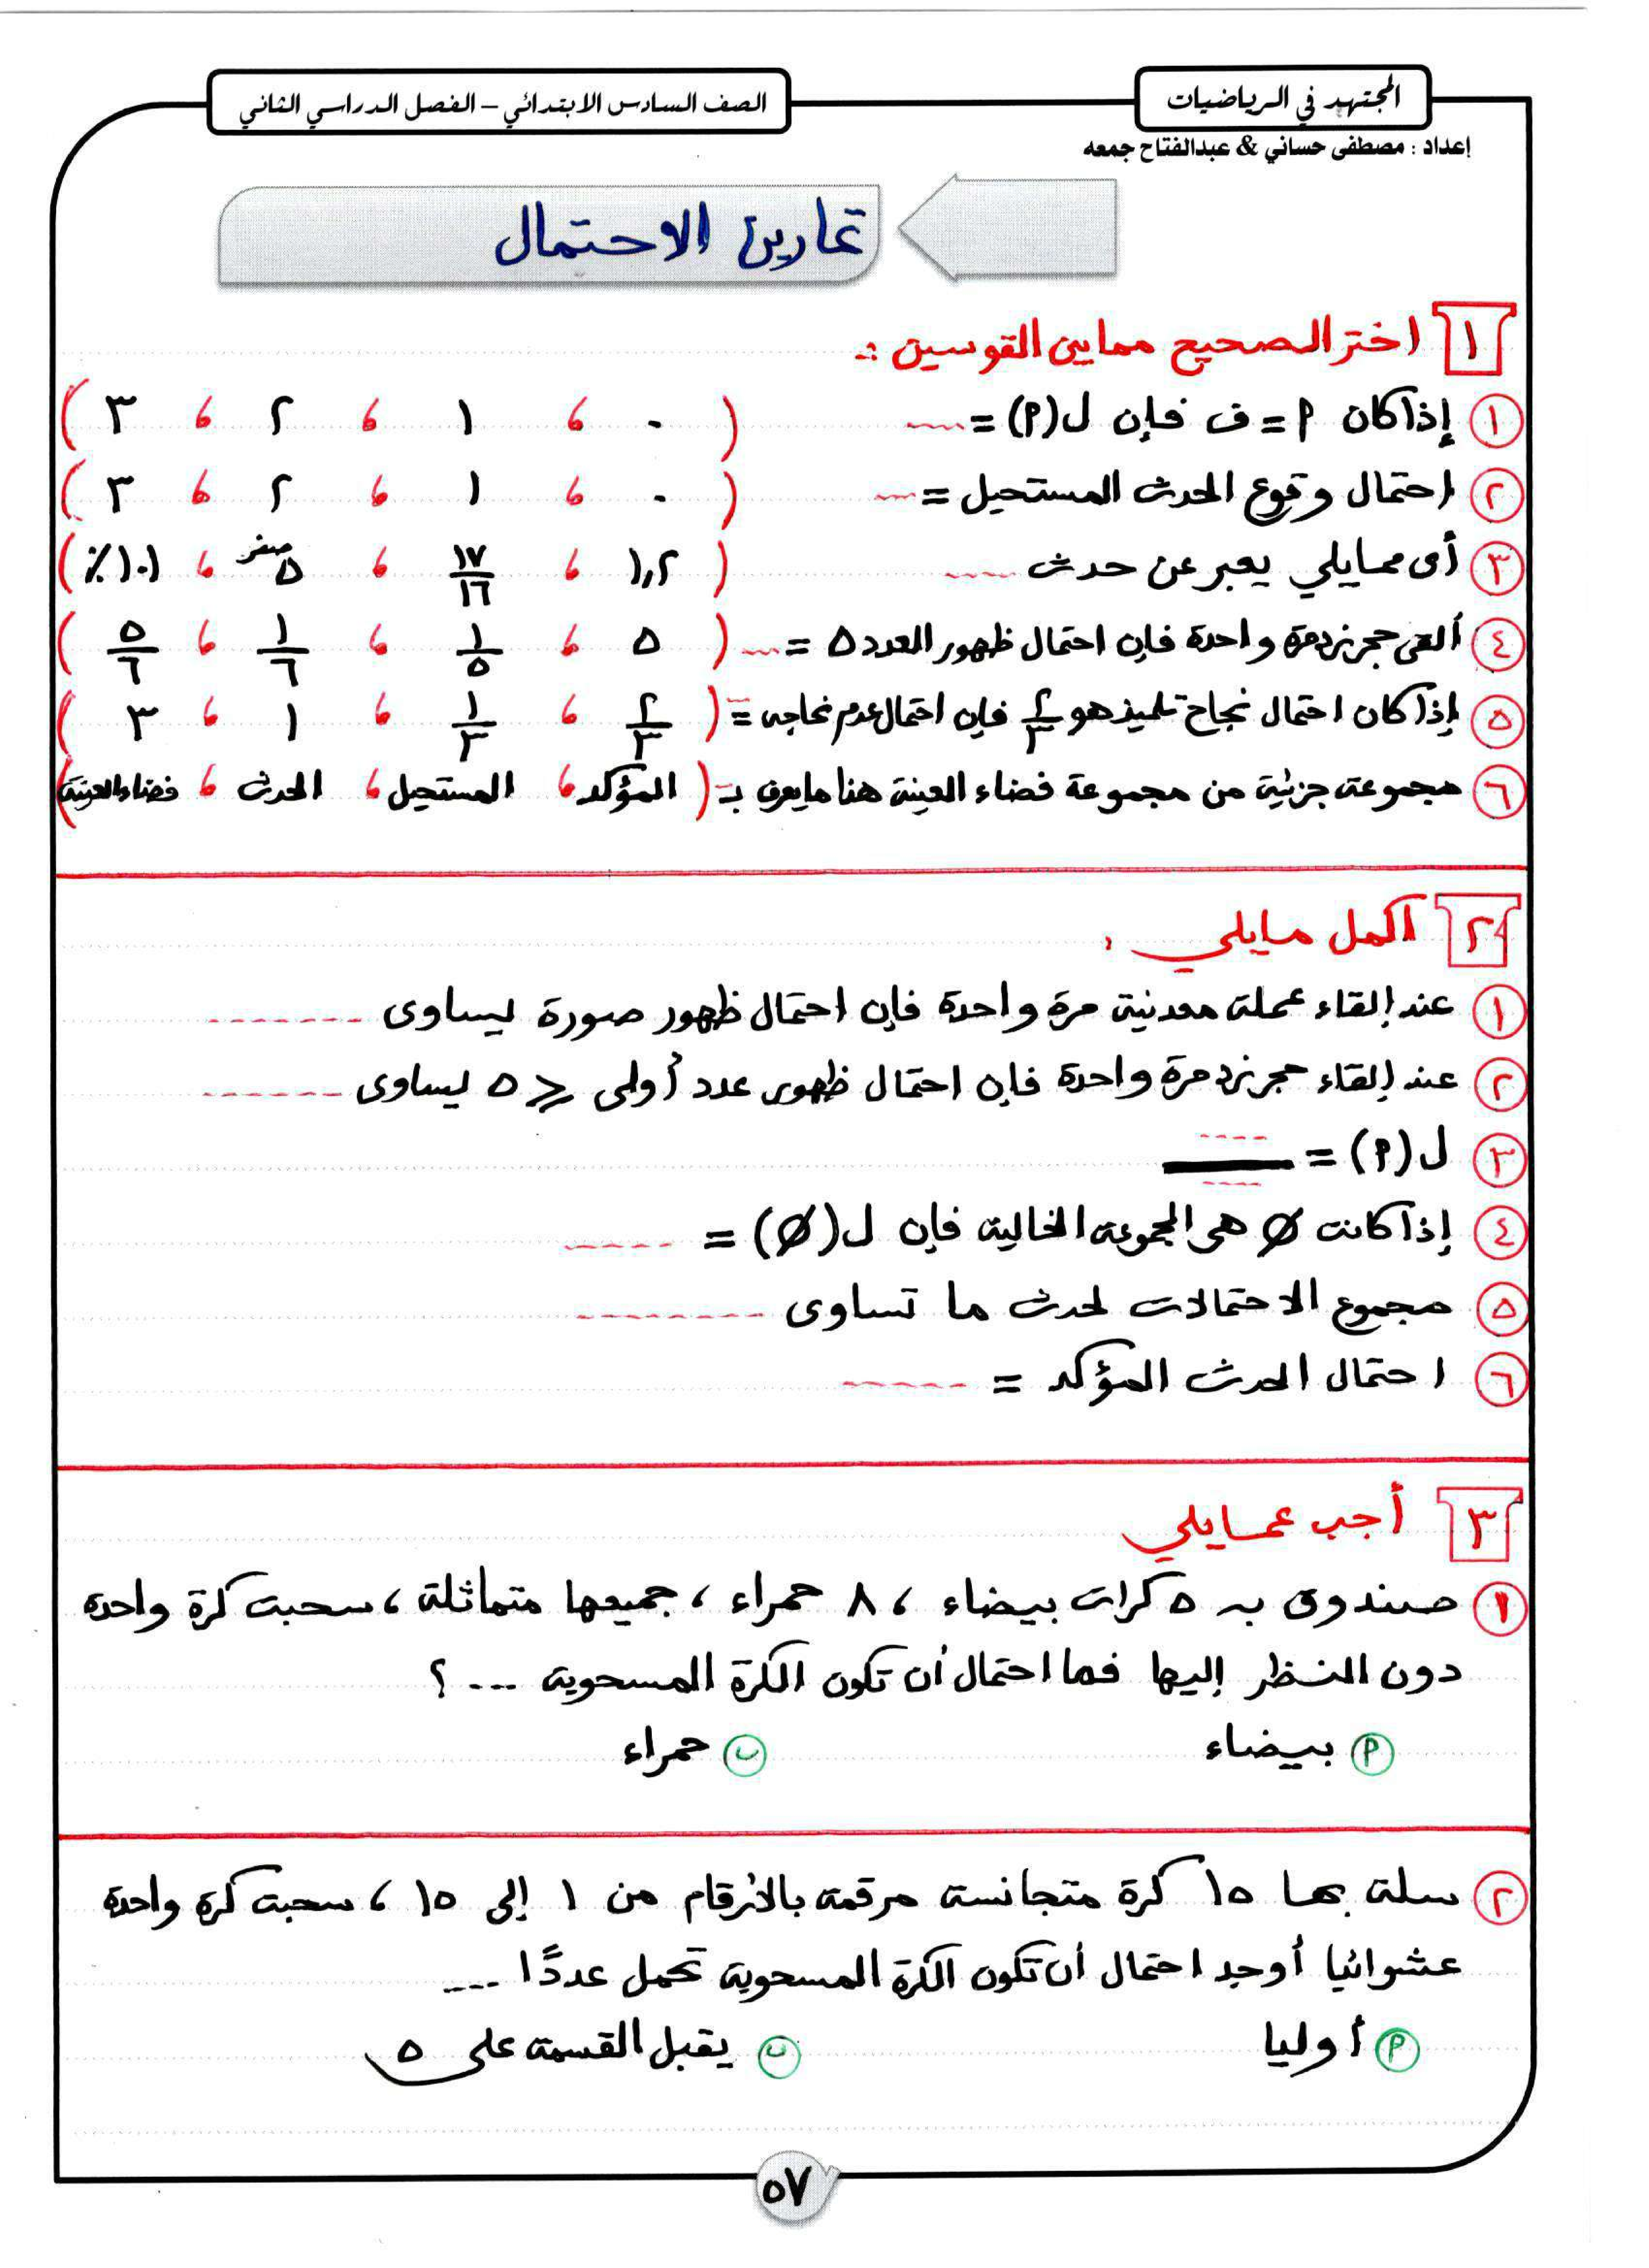 المجتهد في الرياضيات
الصف السادس الابتدائي – الفصل الدراسي الثاني
إعداد : مصطفى حساني & عبدالفتاح جمعه
تمارين الاحتمال
١ اختر الصحيح مما بين القوسين :-
١ إذا كان P = ف فإن ل(P) = ---- ( ٠ ، ١ ، ٢ ، ٣ )
٢ احتمال وقوع الحدث المستحيل = ---- ( ٠ ، ١ ، ٢ ، ٣ )
٣ أى مما يلي يعبر عن حدث ---- ( ١,٢ ، ١٧/١٦ ، صفر/٥ ، ١٠١٪ )
٤ ألقى حجر نرد مرة واحدة فإن احتمال ظهور العدد ٥ = ---- ( ٥ ، ١/٥ ، ١/٦ ، ٥/٦ )
٥ إذا كان احتمال نجاح تلميذ هو ٢/٣ فإن احتمال عدم نجاحه = --- ( ٢/٣ ، ١/٣ ، ١ ، ٣ )
٦ مجموعة جزئية من مجموعة فضاء العينة هنا ما يعرف بـ -- ( المؤكد ، المستحيل ، الحدث ، فضاء العينة )
٢ اكمل ما يلي :
١ عند إلقاء عملة معدنية مرة واحدة فإن احتمال ظهور صورة يساوى -------
٢ عند إلقاء حجر نرد مرة واحدة فإن احتمال ظهور عدد أولى ⩽ ٥ يساوى -------
٣ ل(P) = ----/----
٤ إذا كانت ∅ هى المجموعة الخالية فإن ل(∅) = -----
٥ مجموع الاحتمالات لحدث ما تساوى --------
٦ احتمال الحدث المؤكد = -----
٣ أجب عما يلي
١ صندوق به ٥ كرات بيضاء ، ٨ حمراء ، جميعها متماثلة ، سحبت كرة واحدة
دون النظر إليها فما احتمال أن تكون الكرة المسحوبة --- ؟
P بيضاء ب حمراء
٢ سلة بها ١٥ كرة متجانسة مرقمة بالأرقام من ١ إلى ١٥ ، سحبت كرة واحدة
عشوائيا أوجد احتمال أن تكون الكرة المسحوبة تحمل عددًا ---
P أوليا ب يقبل القسمة على ٥
٥٧